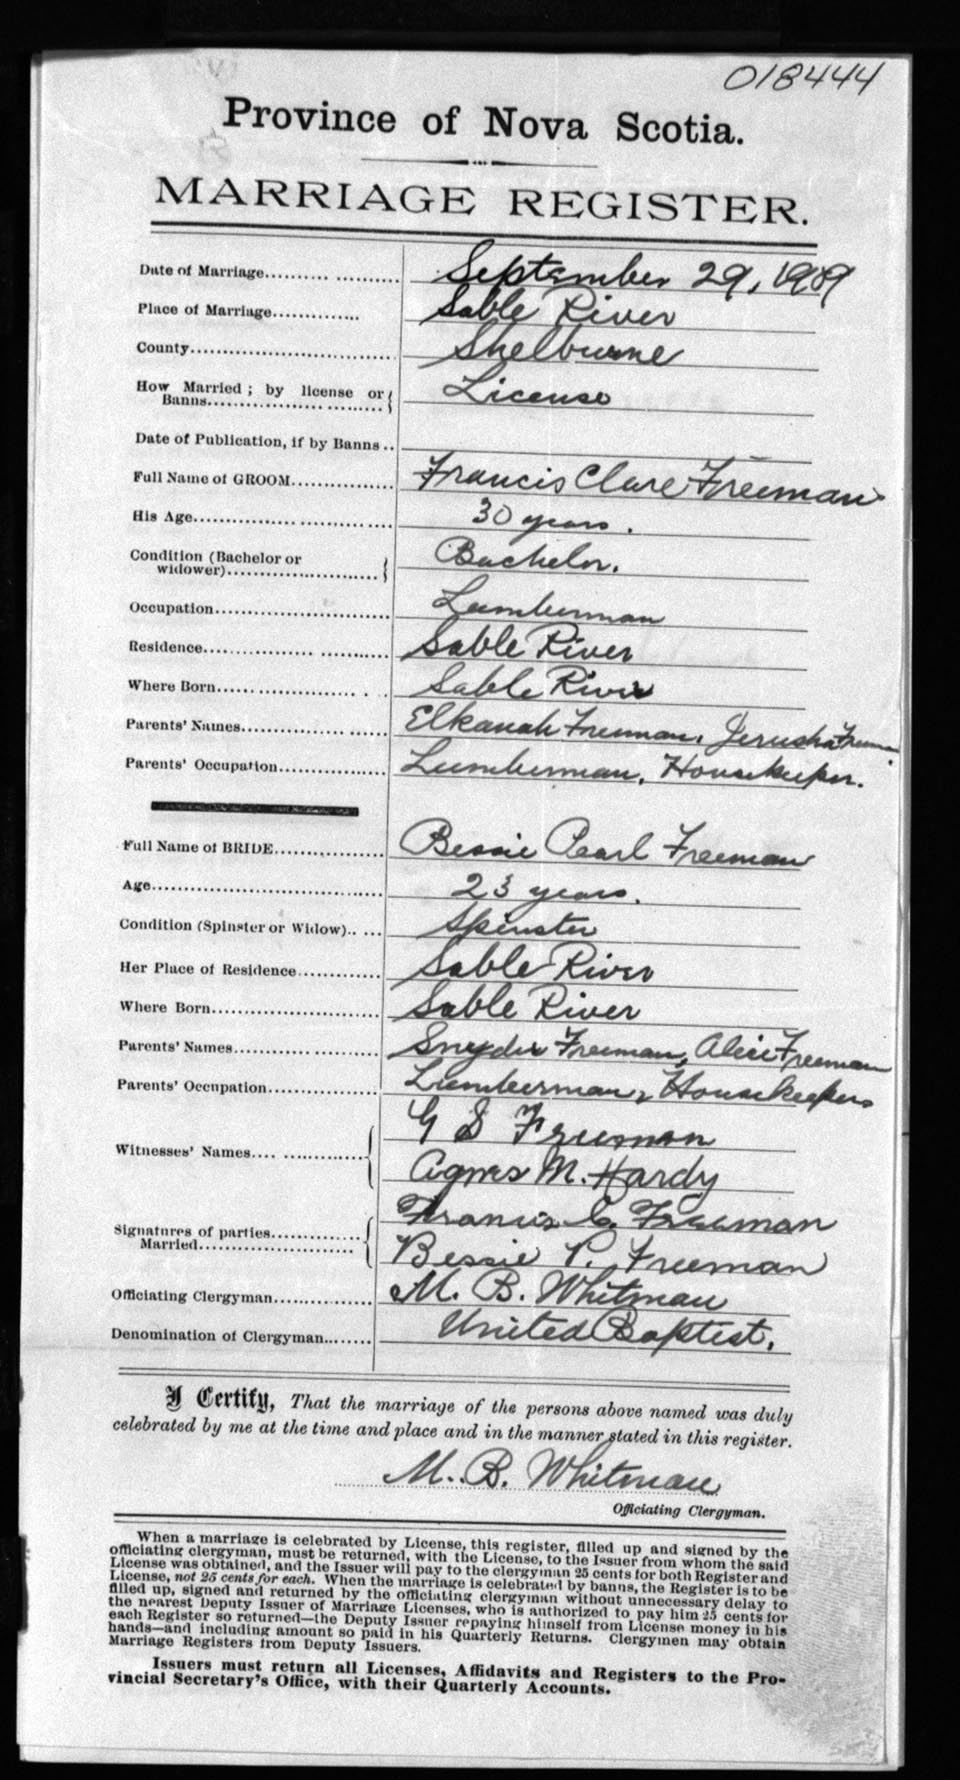 018444
Province of Nova Scotia.
MARRIAGE REGISTER.
Date of Marriage.......... ........... September 29, 1909
Place of Marriage.............. Sable River
County................................... Shelburne
How Married ; by license or License
Banns.................... ..........
Date of Publication, if by Banns ..
Full Name of GROOM................. Francis Clare Freeman
His Age.................................. 30 years.
Condition (Bachelor or Bachelor.
widower)..........................
Occupation............................. Lumberman
Residence............................... Sable River
Where Born...................... . . Sable River
Parents' Names......................... Elkanah Freeman, Jerusha Freeman
Parents' Occupation.................. Lumberman, Housekeeper.
Full Name of BRIDE................... Bessie Pearl Freeman
Age....................................... 23 years.
Condition (Spinster or Widow).. ... Spinster
Her Place of Residence............. Sable River
Where Born............................ Sable River
Parents' Names......................... Snyder Freeman, Alice Freeman
Parents' Occupation................... Lumberman, Housekeepers
G S Freeman
Witnesses' Names.... .............
Agnes M. Hardy
Francis C. Freeman
Signatures of parties..............
Married........................
Bessie P. Freeman
Officiating Clergyman............... M. B. Whitman
Denomination of Clergyman........ United Baptist.
I Certify, That the marriage of the persons above named was duly
celebrated by me at the time and place and in the manner stated in this register.
M. B. Whitman
Officiating Clergyman.
When a marriage is celebrated by License, this register, filled up and signed by the
officiating clergyman, must be returned, with the License, to the Issuer from whom the said
License was obtained, and the Issuer will pay to the clergyman 25 cents for both Register and
License, not 25 cents for each. When the marriage is celebrated by banns, the Register is to be
filled up, signed and returned by the officiating clergyman without unnecessary delay to
the nearest Deputy Issuer of Marriage Licenses, who is authorized to pay him 25 cents for
each Register so returned—the Deputy Issuer repaying himself from License money in his
hands—and including amount so paid in his Quarterly Returns. Clergymen may obtain
Marriage Registers from Deputy Issuers.
Issuers must return all Licenses, Affidavits and Registers to the Pro-
vincial Secretary's Office, with their Quarterly Accounts.